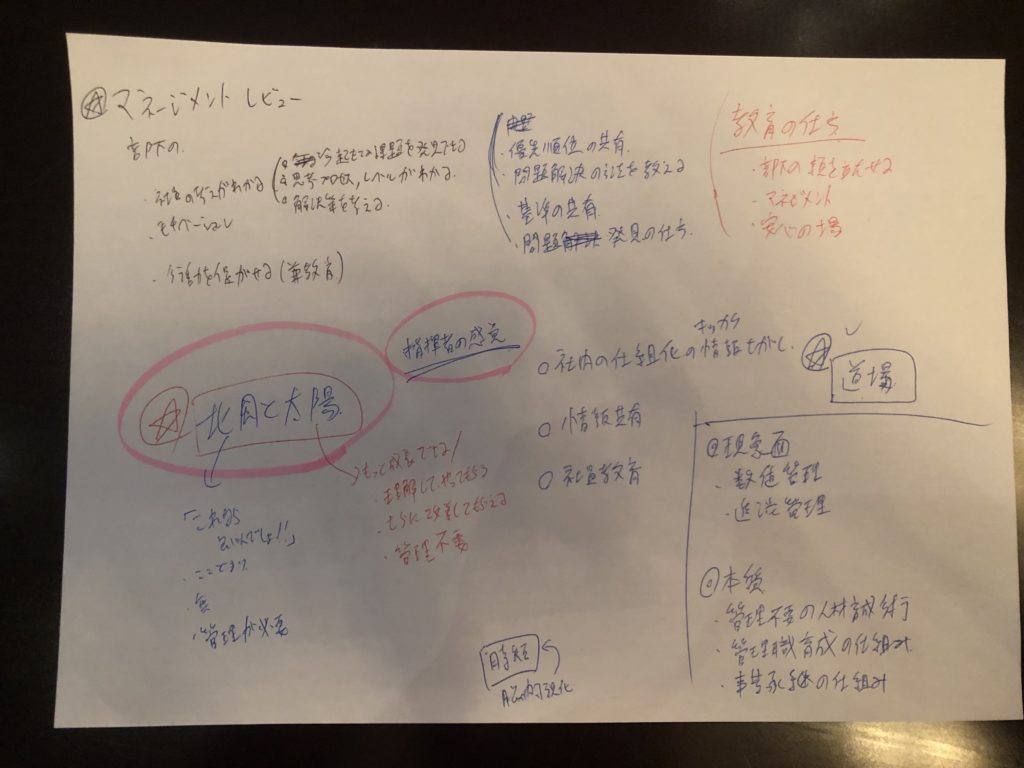 マネージメントレビュー
部下の
・社員の考えがわかる
・モチベーション
・行動を促がせる(兼教育)
今起きてる課題を発見できる
思考プロセス,レベルがわかる.
解決策を考える.
・優先順位の共有.
・問題解決の方法を教える
・基準の共有.
・問題 発見の仕方.
教育の仕方
・部下の顔を立たせる
・マネジメント
・安心の場
指揮者の感覚
北風と太陽
もっと成長できる!
・理解してやってもらう
・さらに改善してもらえる
・管理不要
「これなら
でしょ!!」
・ここ止まり
・無
・管理が必要
○社内の仕組化の情報さがし.
○情報共有
○社員教育
道場
◎現象面
・数値管理
・進捗管理
◎本質
・管理不要の人材育成
・管理職育成の仕組み.
・事業承継の仕組み
時短